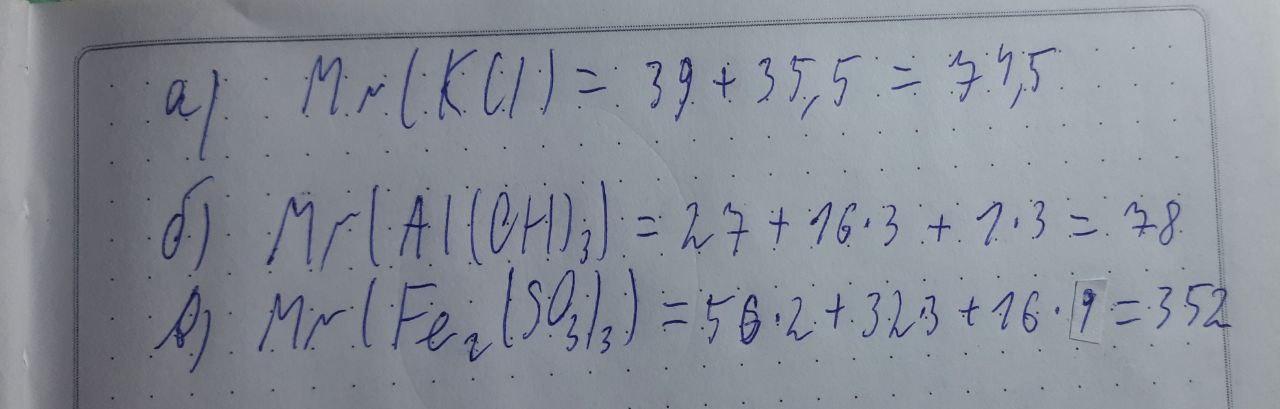 а) Mr(KCl) = 39 + 35,5 = 74,5
б) Mr(Al(OH)₃) = 27 + 16·3 + 1·3 = 78
в) Mr(Fe₂(SO₃)₃) = 56·2 + 32·3 + 16·9 = 352